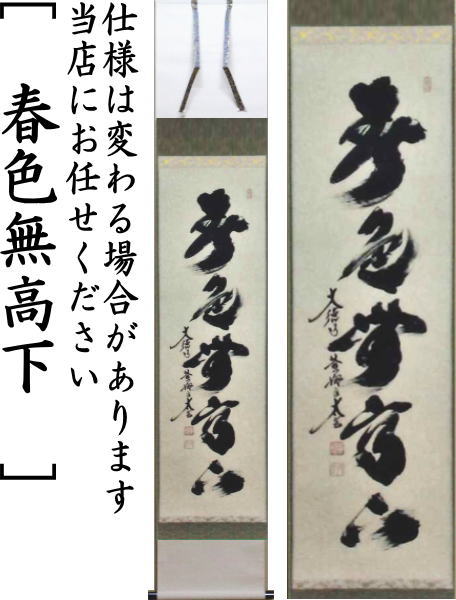 仕様は変わる場合があります
当店にお任せください
[春色無高下]
春色無高下
春色無高下